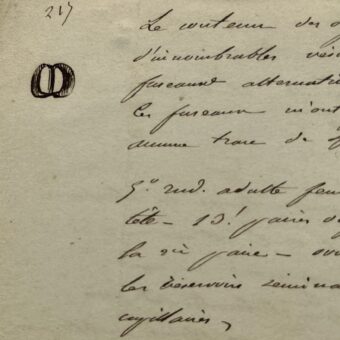 217
Le contenu des
d'innombrables
fuseaux
Les fuseaux m'ont
aucune trace de
5° ind. adulte
tête - 13! paires
la 2e paire -
les réservoirs sémin
capillaires,